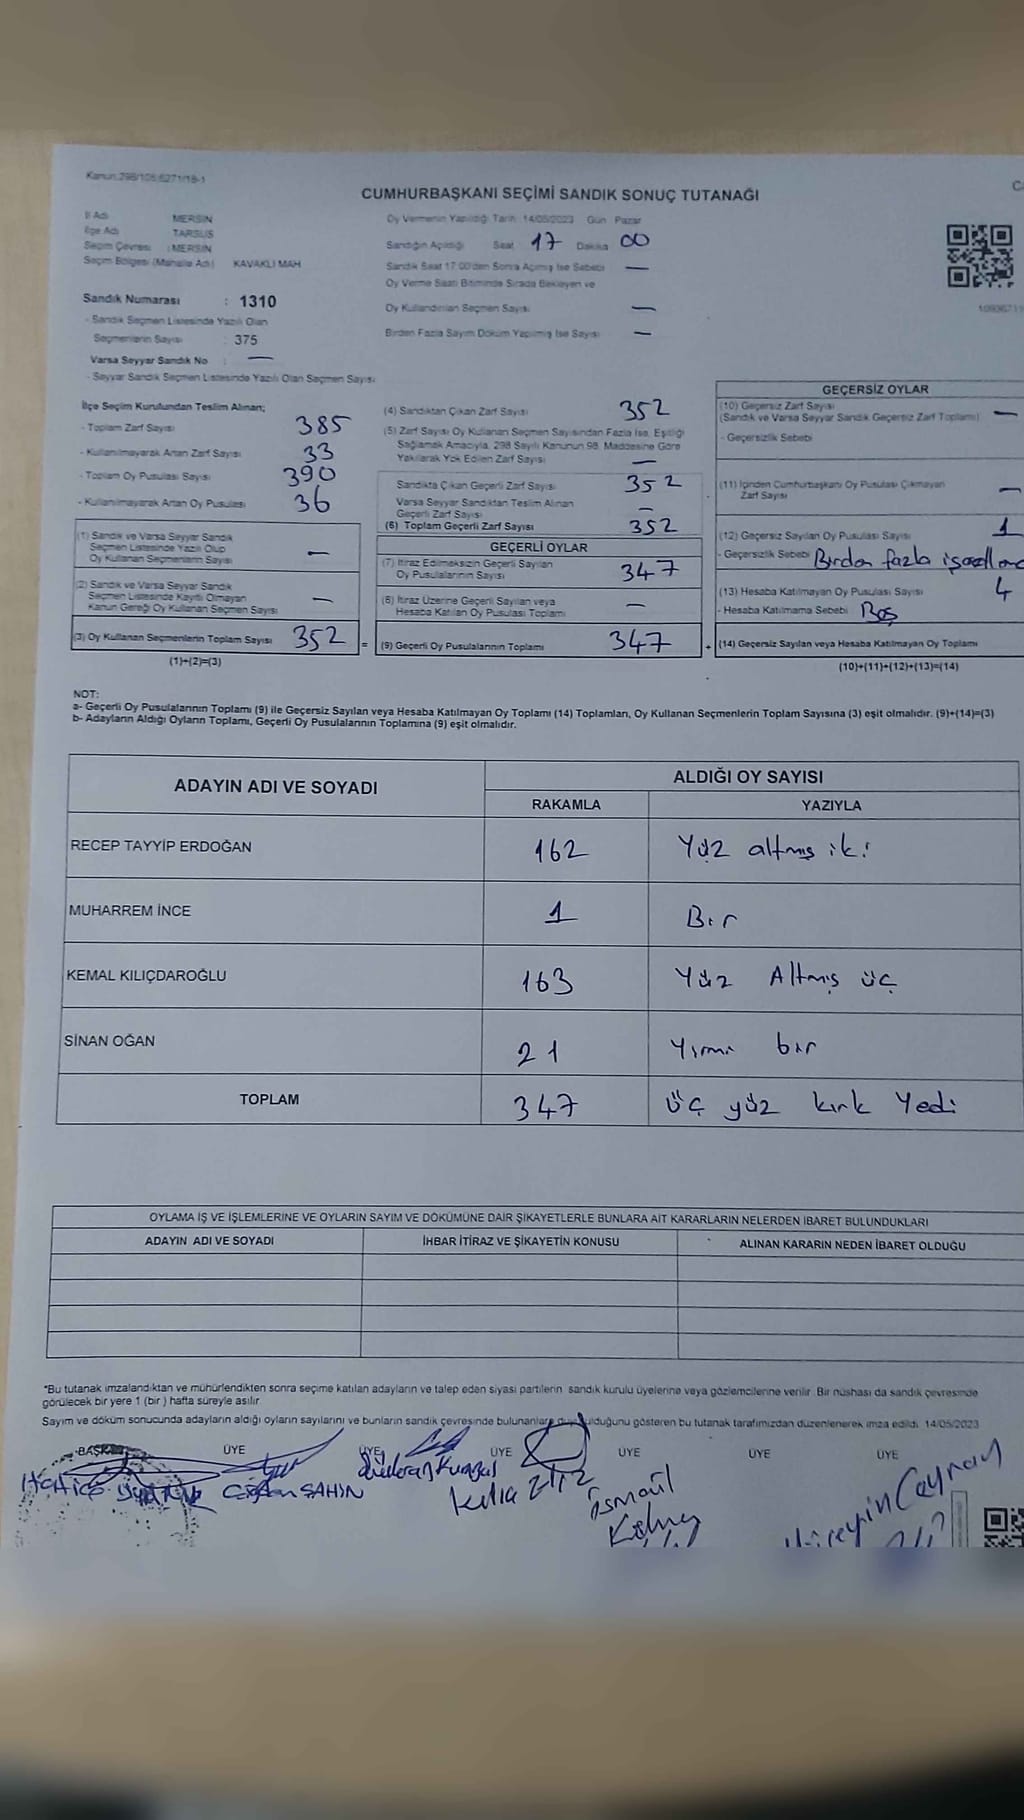 Kanun:298/105;6271/18-1
CUMHURBAŞKANI SEÇİMİ SANDIK SONUÇ TUTANAĞI
İl Adı MERSİN
İlçe Adı TARSUS
Seçim Çevresi : MERSİN
Seçim Bölgesi (Mahalle Adı) KAVAKLI MAH
Sandık Numarası : 1310
- Sandık Seçmen Listesinde Yazılı Olan
Seçmenlerin Sayısı : 375
Varsa Seyyar Sandık No : —
- Seyyar Sandık Seçmen Listesinde Yazılı Olan Seçmen Sayısı
Oy Vermenin Yapıldığı Tarih: 14/05/2023 Gün Pazar
Sandığın Açıldığı Saat 17 Dakika 00
Sandık Saat 17:00'den Sonra Açılmış İse Sebebi —
Oy Verme Saati Bitiminde Sırada Bekleyen ve
Oy Kullandırılan Seçmen Sayısı —
Birden Fazla Sayım Döküm Yapılmış İse Sayısı —
İlçe Seçim Kurulundan Teslim Alınan;
- Toplam Zarf Sayısı 385
- Kullanılmayarak Artan Zarf Sayısı 33
- Toplam Oy Pusulası Sayısı 390
- Kullanılmayarak Artan Oy Pusulası 36
(1) Sandık ve Varsa Seyyar Sandık
Seçmen Listesinde Yazılı Olup
Oy Kullanan Seçmenlerin Sayısı —
(2) Sandık ve Varsa Seyyar Sandık
Seçmen Listesinde Kayıtlı Olmayan
Kanun Gereği Oy Kullanan Seçmen Sayısı —
(3) Oy Kullanan Seçmenlerin Toplam Sayısı 352 =
(1)+(2)=(3)
(4) Sandıktan Çıkan Zarf Sayısı 352
(5) Zarf Sayısı Oy Kullanan Seçmen Sayısından Fazla İse, Eşitliği
Sağlamak Amacıyla, 298 Sayılı Kanunun 98. Maddesine Göre
Yakılarak Yok Edilen Zarf Sayısı —
Sandıkta Çıkan Geçerli Zarf Sayısı 352
Varsa Seyyar Sandıktan Teslim Alınan
Geçerli Zarf Sayısı —
(6) Toplam Geçerli Zarf Sayısı 352
GEÇERLİ OYLAR
(7) İtiraz Edilmeksizin Geçerli Sayılan
Oy Pusulalarının Sayısı 347
(8) İtiraz Üzerine Geçerli Sayılan veya
Hesaba Katılan Oy Pusulası Toplamı —
(9) Geçerli Oy Pusulalarının Toplamı 347 +
GEÇERSİZ OYLAR
(10) Geçersiz Zarf Sayısı
(Sandık ve Varsa Seyyar Sandık Geçersiz Zarf Toplamı) —
- Geçersizlik Sebebi
(11) İçinden Cumhurbaşkanı Oy Pusulası Çıkmayan
Zarf Sayısı —
(12) Geçersiz Sayılan Oy Pusulası Sayısı 1
- Geçersizlik Sebebi Birden fazla
(13) Hesaba Katılmayan Oy Pusulası Sayısı 4
- Hesaba Katılmama Sebebi Boş
(14) Geçersiz Sayılan veya Hesaba Katılmayan Oy Toplamı
(10)+(11)+(12)+(13)=(14)
NOT:
a- Geçerli Oy Pusulalarının Toplamı (9) ile Geçersiz Sayılan veya Hesaba Katılmayan Oy Toplamı (14) Toplamları, Oy Kullanan Seçmenlerin Toplam Sayısına (3) eşit olmalıdır. (9)+(14)=(3)
b- Adayların Aldığı Oyların Toplamı, Geçerli Oy Pusulalarının Toplamına (9) eşit olmalıdır.
ADAYIN ADI VE SOYADI ALDIĞI OY SAYISI
RAKAMLA YAZIYLA
RECEP TAYYİP ERDOĞAN 162 Yüz altmış iki
MUHARREM İNCE 1 Bir
KEMAL KILIÇDAROĞLU 163 Yüz Altmış üç
SİNAN OĞAN 21 Yirmi bir
TOPLAM 347 üç yüz kırk Yedi
OYLAMA İŞ VE İŞLEMLERİNE VE OYLARIN SAYIM VE DÖKÜMÜNE DAİR ŞİKAYETLERLE BUNLARA AİT KARARLARIN NELERDEN İBARET BULUNDUKLARI
ADAYIN ADI VE SOYADI İHBAR İTİRAZ VE ŞİKAYETİN KONUSU ALINAN KARARIN NEDEN İBARET OLDUĞU
*Bu tutanak imzalandıktan ve mühürlendikten sonra seçime katılan adayların ve talep eden siyasi partilerin sandık kurulu üyelerine veya gözlemcilerine verilir. Bir nüshası da sandık çevresinde
görülecek bir yere 1 (bir) hafta süreyle asılır.
Sayım ve döküm sonucunda adayların aldığı oyların sayılarını ve bunların sandık çevresinde bulunanlara olduğunu gösteren bu tutanak tarafımızdan düzenlenerek imza edildi. 14/05/2023
BAŞKAN ÜYE ÜYE ÜYE ÜYE ÜYE ÜYE
Hatice ŞAHİN İsmail Hüseyin Ceyran